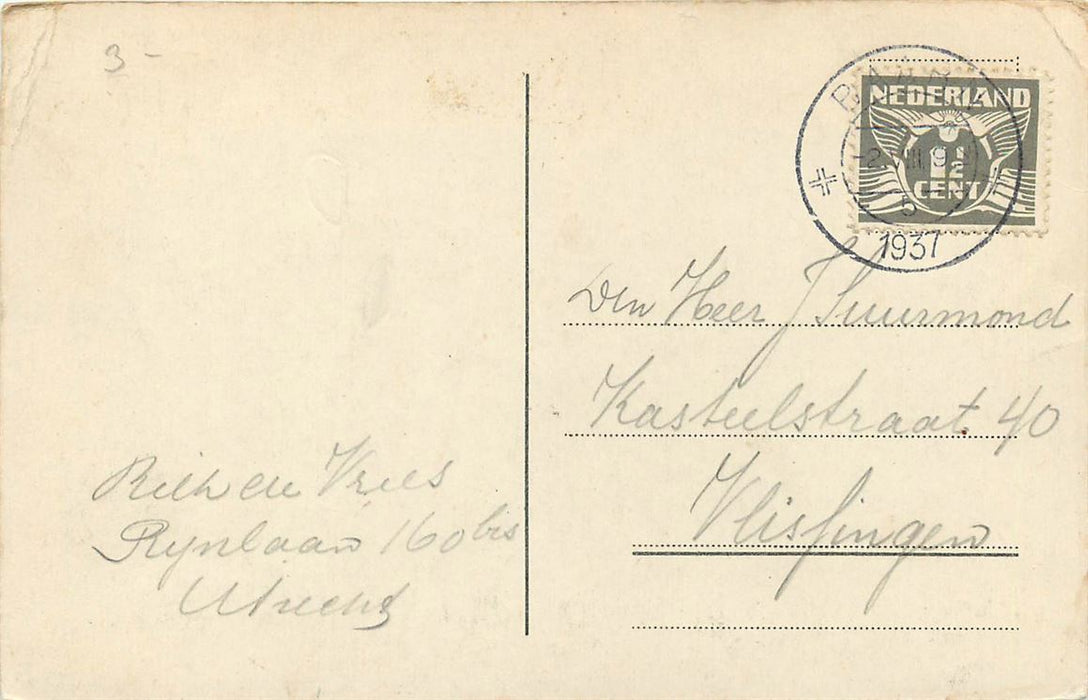 3 -
NEDERLAND
1½
CENT
BAARN
-2. VIII 9
5
1937
Den Heer J Suurmond
Kasteelstraat 40
Vlissingen
Riek de Vries
Rynlaan 160 bis
Utrecht